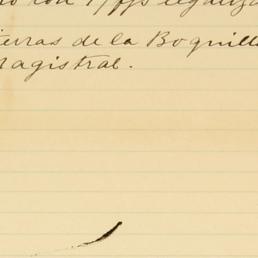 no con 17 fjs legaliza
ierras de la Boquill
Magistral.